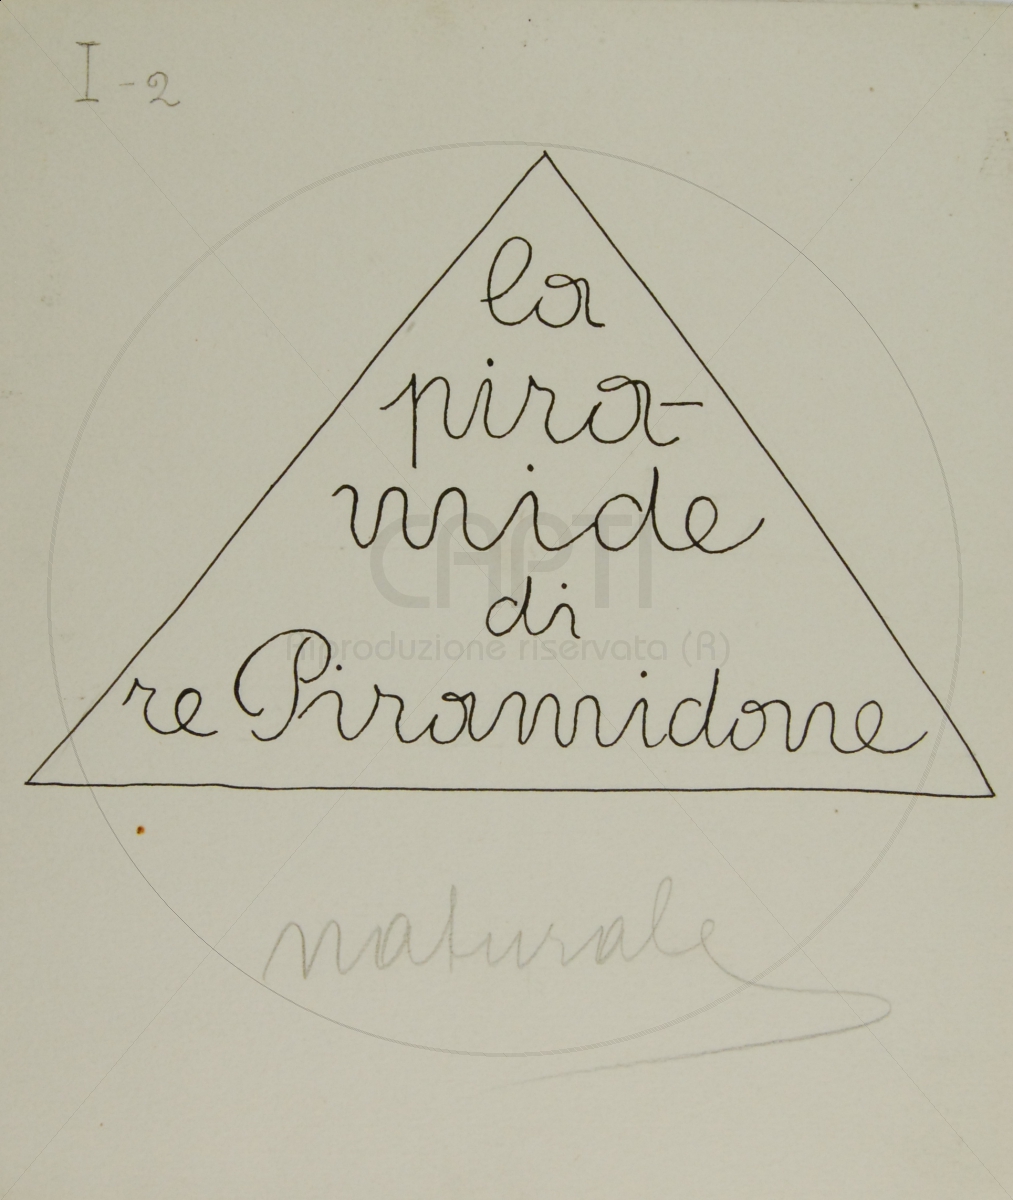 I-2
la
pira-
mide
di
re Piramidone
CAPTI
Riproduzione riservata (R)
naturale